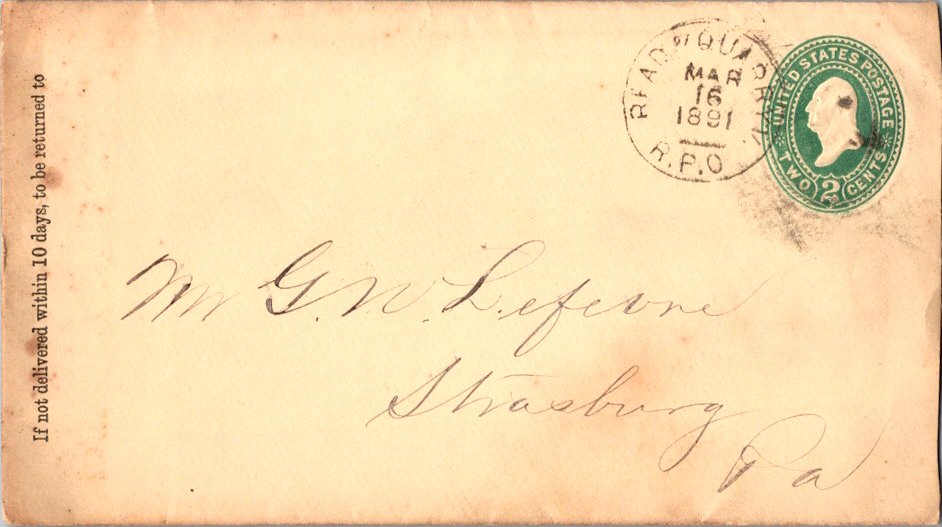 If not delivered within 10 days, to be returned to
READ. & QUARRYV.
MAR
16
1891
R.P.O.
UNITED STATES POSTAGE
TWO 2 CENTS
Mr G. N. Lefevre
Strasburg
Pa